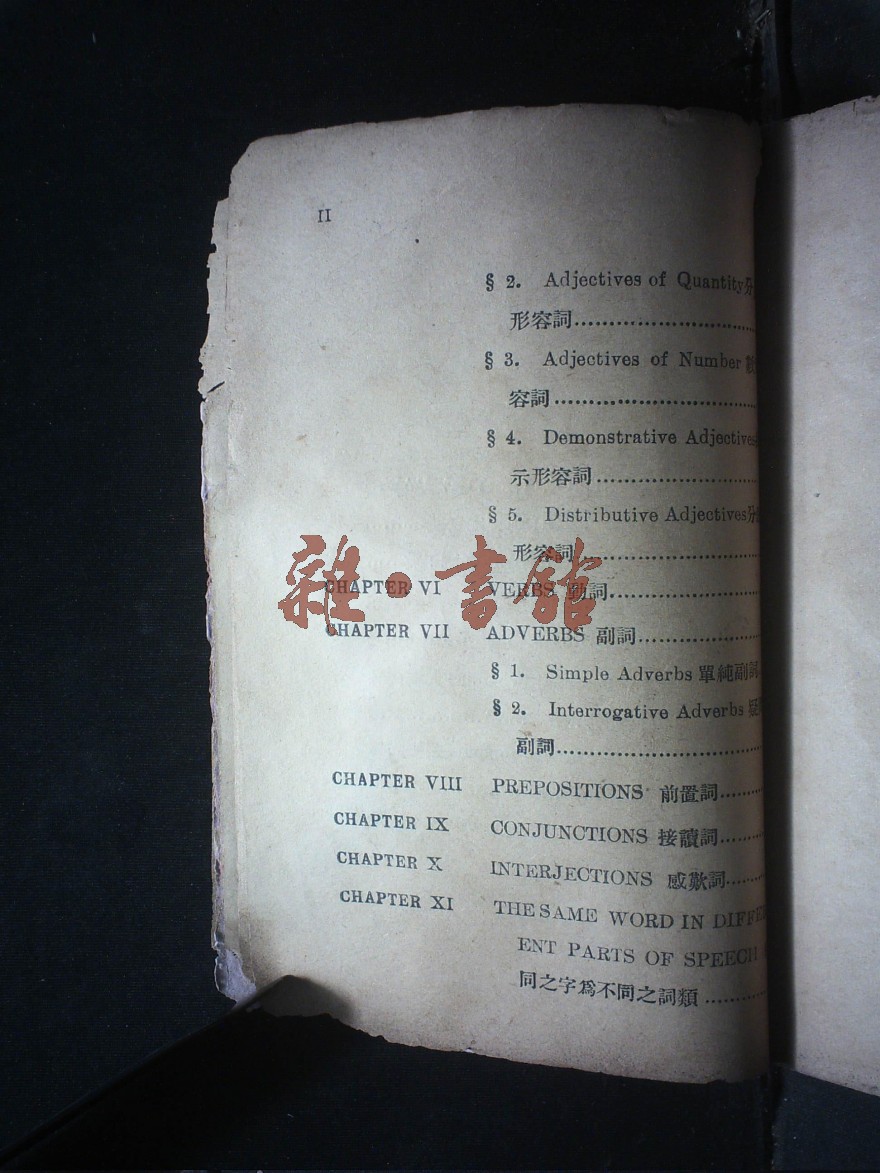 II
§ 2. Adjectives of Quantity分
形容詞
§ 3. Adjectives of Number
容詞
§ 4. Demonstrative Adjectives
示形容詞
§ 5. Distributive Adjectives分
形容詞
CHAPTER VI VERBS 動詞
雜·書館
CHAPTER VII ADVERBS 副詞
§ 1. Simple Adverbs 單純副詞
§ 2. Interrogative Adverbs 疑
副詞
CHAPTER VIII PREPOSITIONS 前置詞
CHAPTER IX CONJUNCTIONS 接讀詞
CHAPTER X INTERJECTIONS 感歎詞
CHAPTER XI THE SAME WORD IN DIFFER
ENT PARTS OF SPEECH
同之字爲不同之詞類